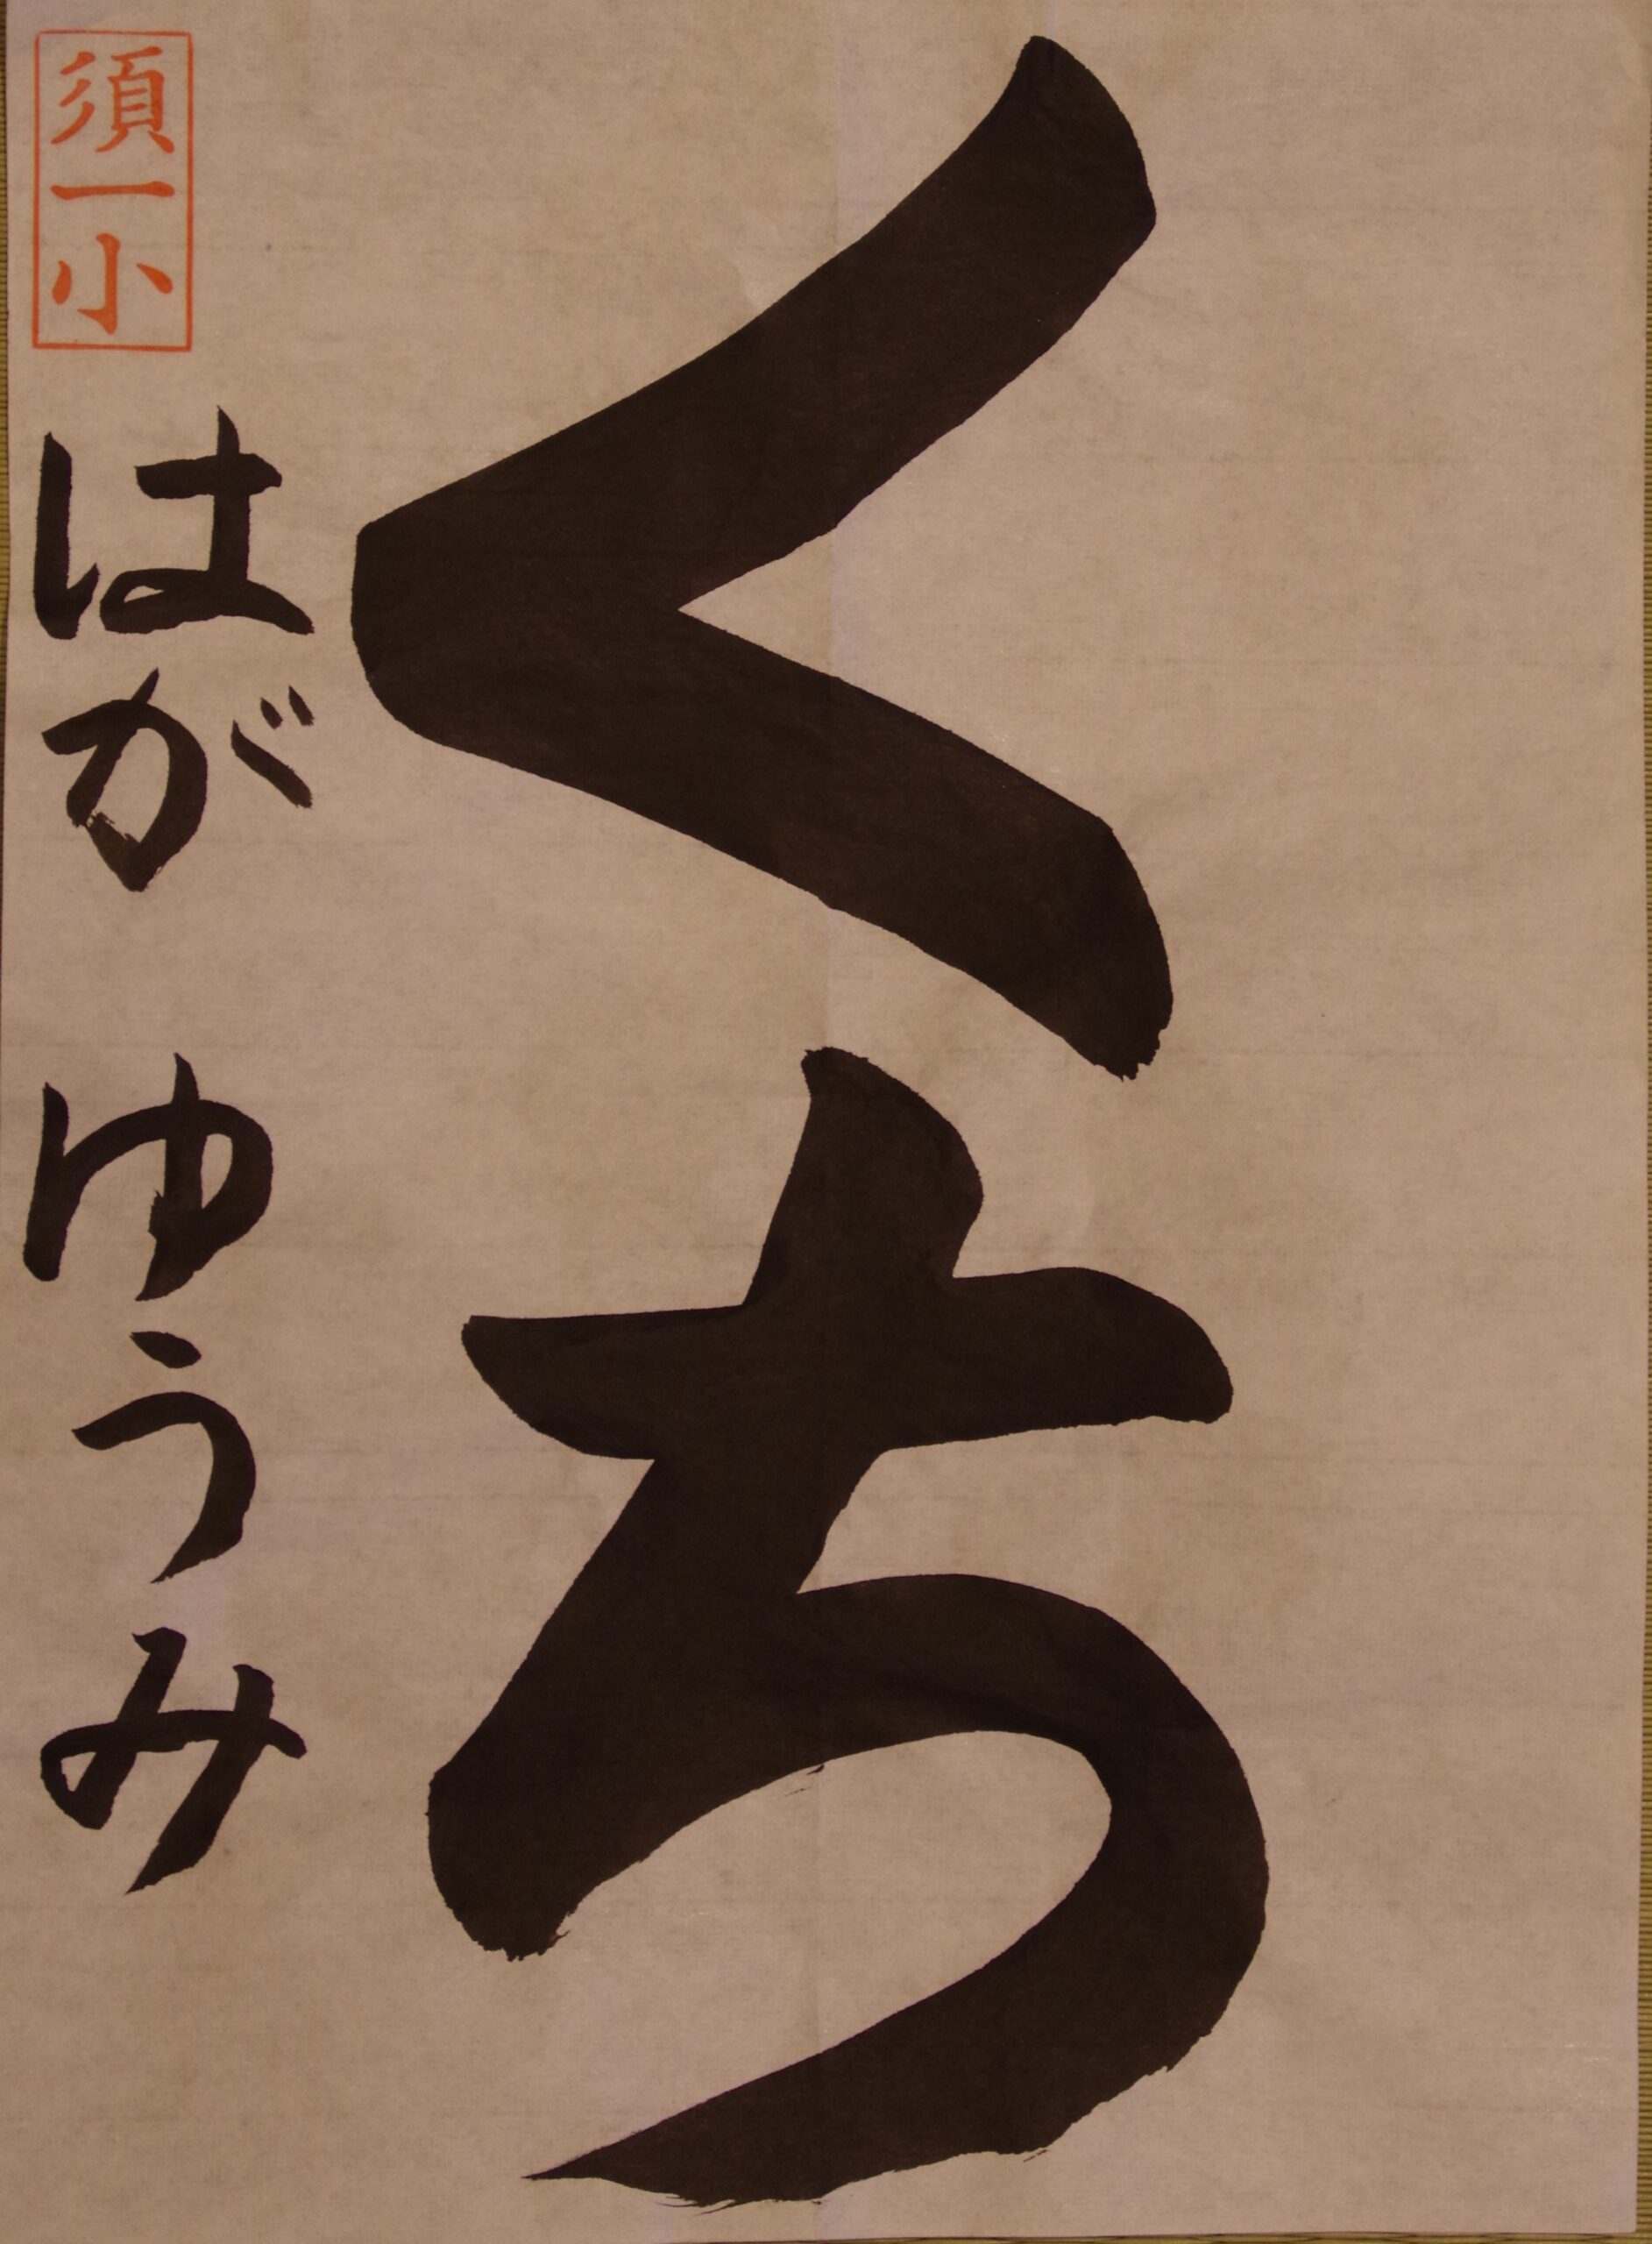 くち
須一小
はが ゆうみ